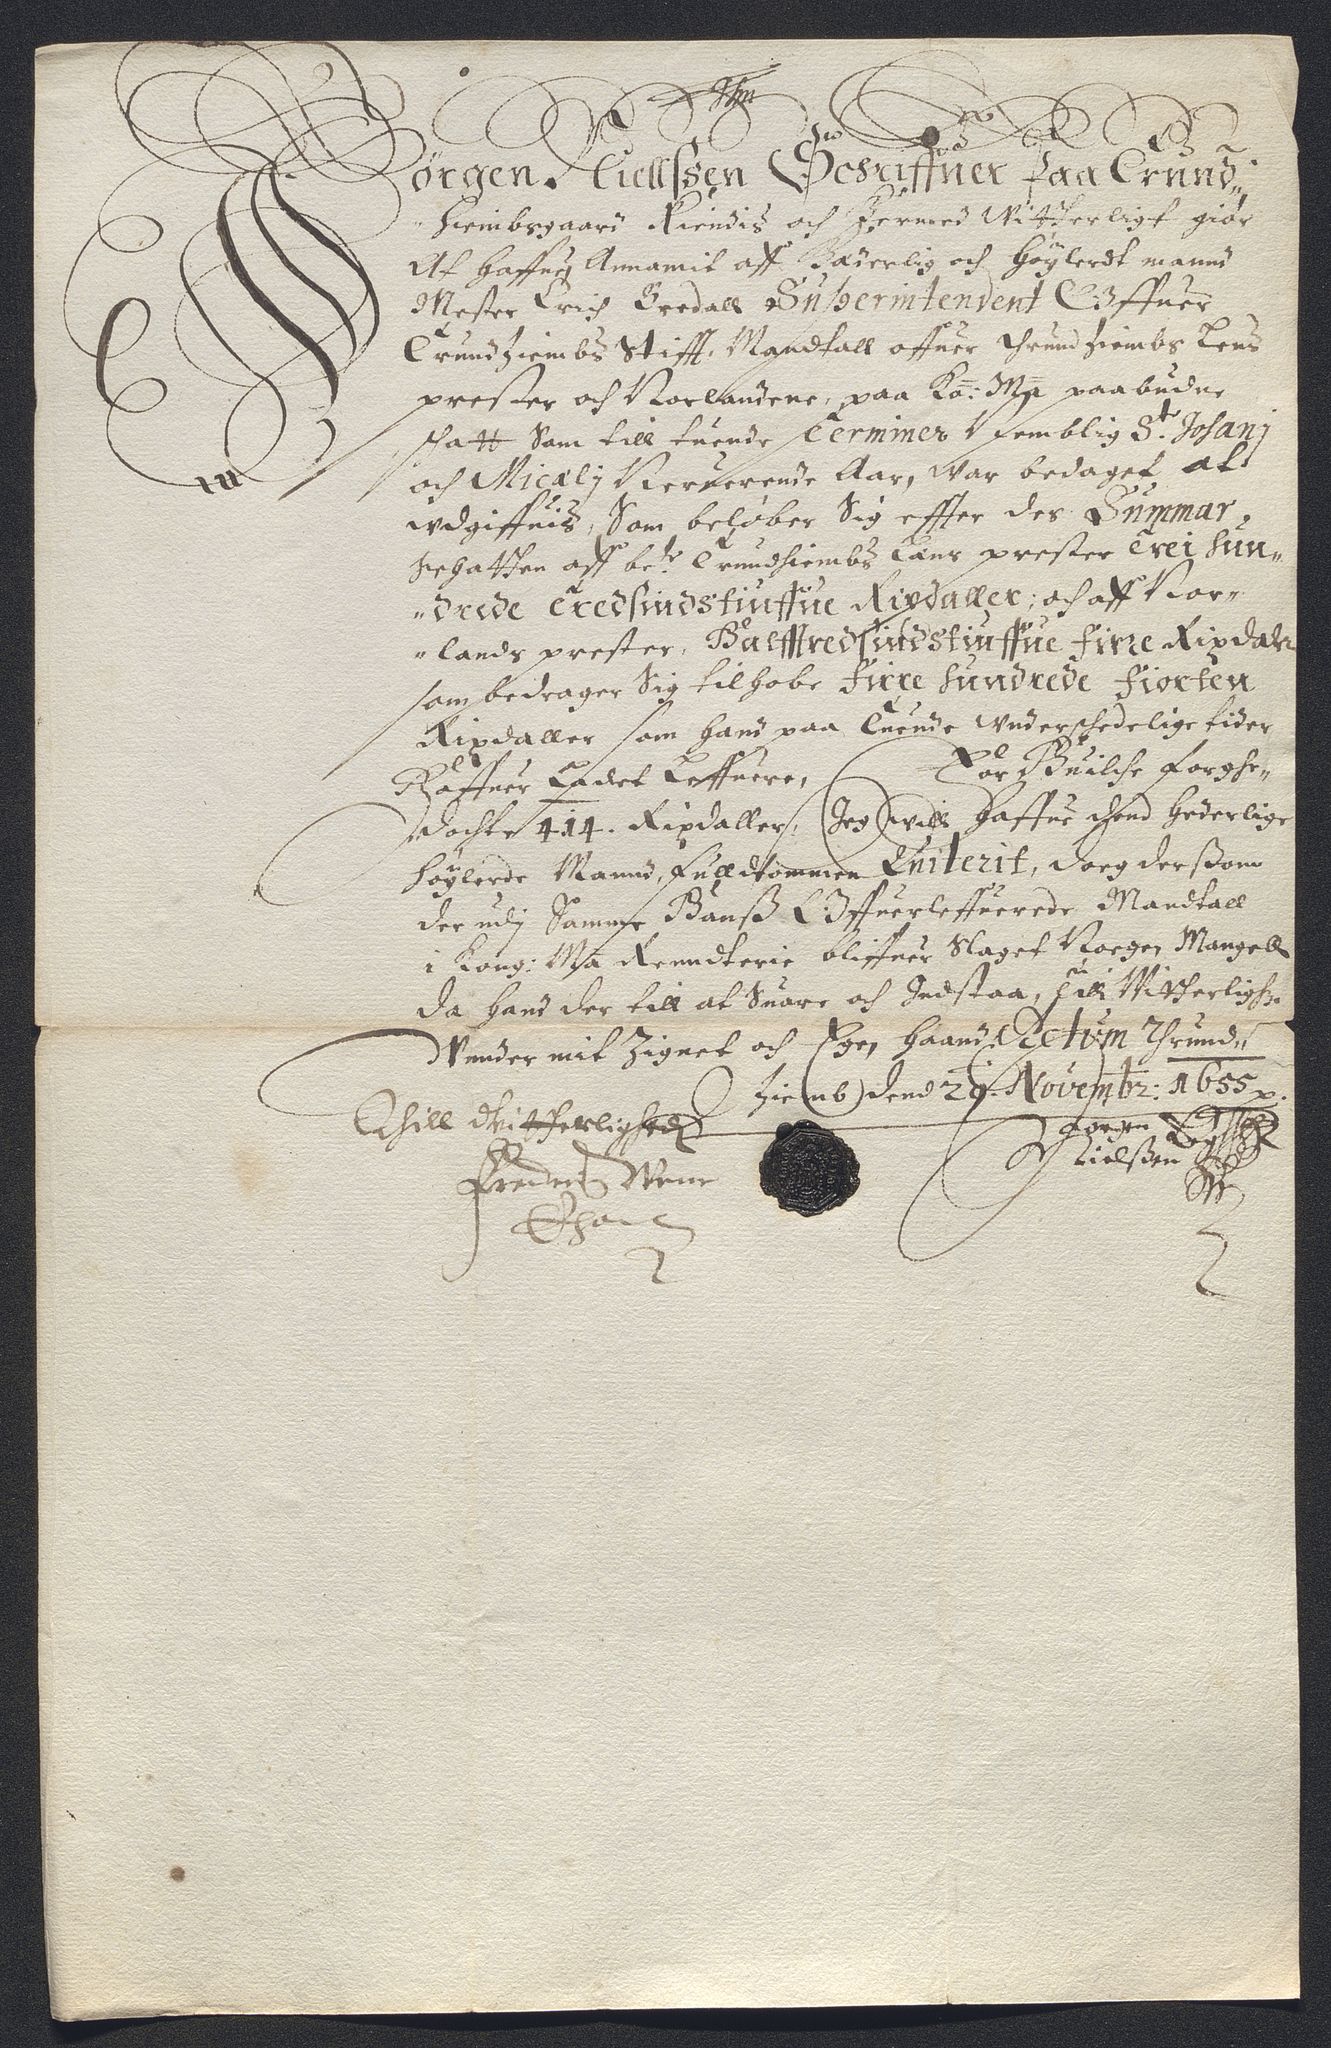 Jørgen Nielssen Schriffuer paa Trund„
„hiembsgaard Kiendis och Hermed Witterligt giør
At haffuej Annamit aff Hæderlig och Høylerdt mannd
Mester Erich Bredall Superintendent Offuer
Trundhiembs Stifft, Mandtall offuer Thrundhiembs Lens
prester och Norlandene, paa Ko: Ma paabudne
skatt Som till tuende Terminer Nemblig St. Johanj
och Micælj Neruerende Aar, war bedaget at
wdgiffuis, Som beløber Sig effter des Summar„
ische aff be.te Trundhiembs Læns prester Trei hun„
„drede Tredsindstiuffue Rixdaller; och aff Nor„
„lands prester, Halfftredsindstiuffue firre Rixdaler
som bedrager Sig tilhobe Firre hundrede Fiorten
Rixdaller som hand paa Tuende wnderschedelige tider
Haffuer Ladet Leffuere, For Huilche forsche„
dochte 414. Rixdaller, Jeg will haffue dend hederlige
høylerde Mannd, fuldkommen Quiterit, doeg dersom
der udj Samme Hanss Offuerleffuerede Mandtall
i Kong: Ma Renndterie bliffuer Slaget Noegen Mangell
da hand der till at Suare och Indstaa, Till Witterlighed
Wnder mit Zignet och Egen haand, Actum Thrund„
hiemb dend 29. Novembr: 1655 p.
Jørgen
Nielssen
Till Witterlighed
Frederich